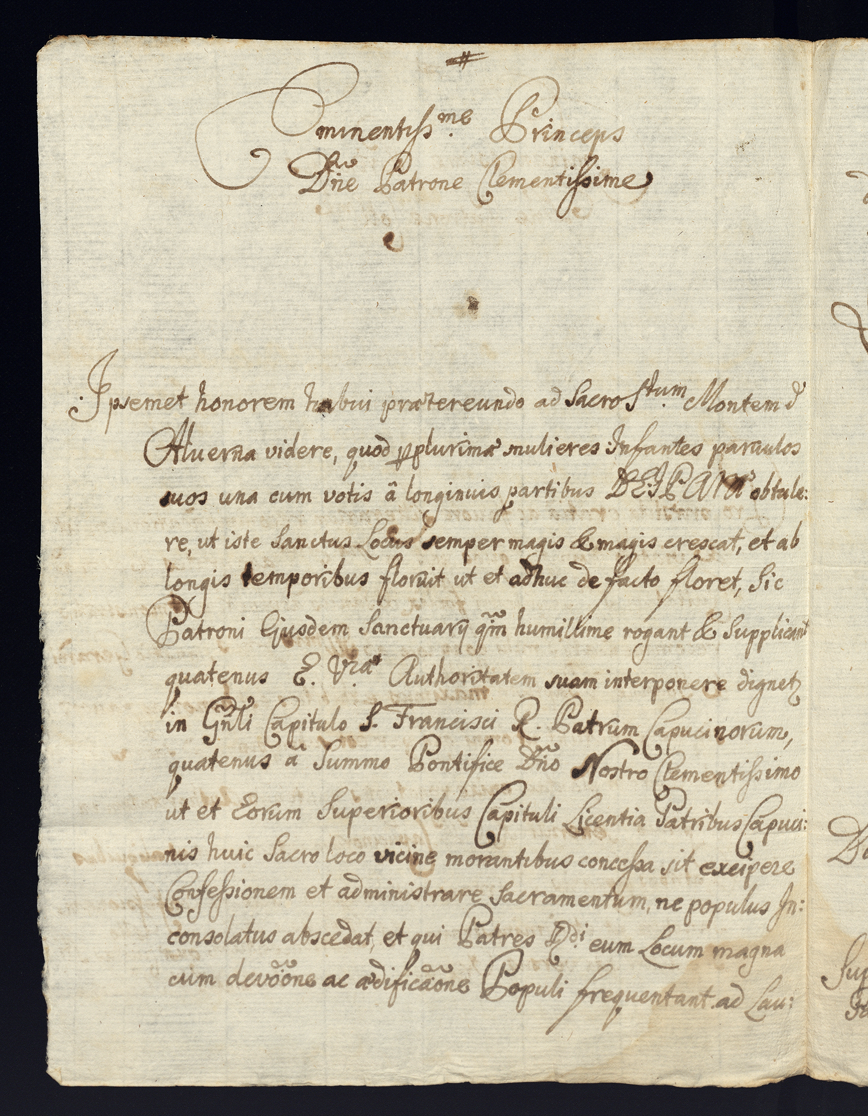 #
Eminentiss.me Princeps
Dn̄e Patrone Clementissime
Ipsemet honorem habui prætereundo ad Sacro Stum Montem d
Aluerna videre, quod pplurimæ mulieres Infantes paruulos
suos una cum votis â longinuis partibus DEIPARÆ obtule:
re, ut iste Sanctus Locus semper magis & magis crescat, et ab
longis temporibus floruit ut et adhuc de facto floret, Sic
Patroni Ejusdem Sanctuarij qm̄ humillime rogant & Supplicant
quatenus E. V.ra Authoritatem suam interponere dignet
in Gn̄li Capitulo S. Francisci R. Patrum Capucinorum,
quatenus â Summo Pontifice Dn̄o Nostro Clementissimo
ut et Eorum Superioribus Capituli Licentia Patribus Capuci:
nis huic Sacro loco vicine morantibus concessa sit excipere
Confessionem et administrare Sacramentum, ne populus In:
consolatus abscedat, et qui Patres Ddi eum Locum magna
cum devōone ac ædificāone Populi frequentant ad Lau: